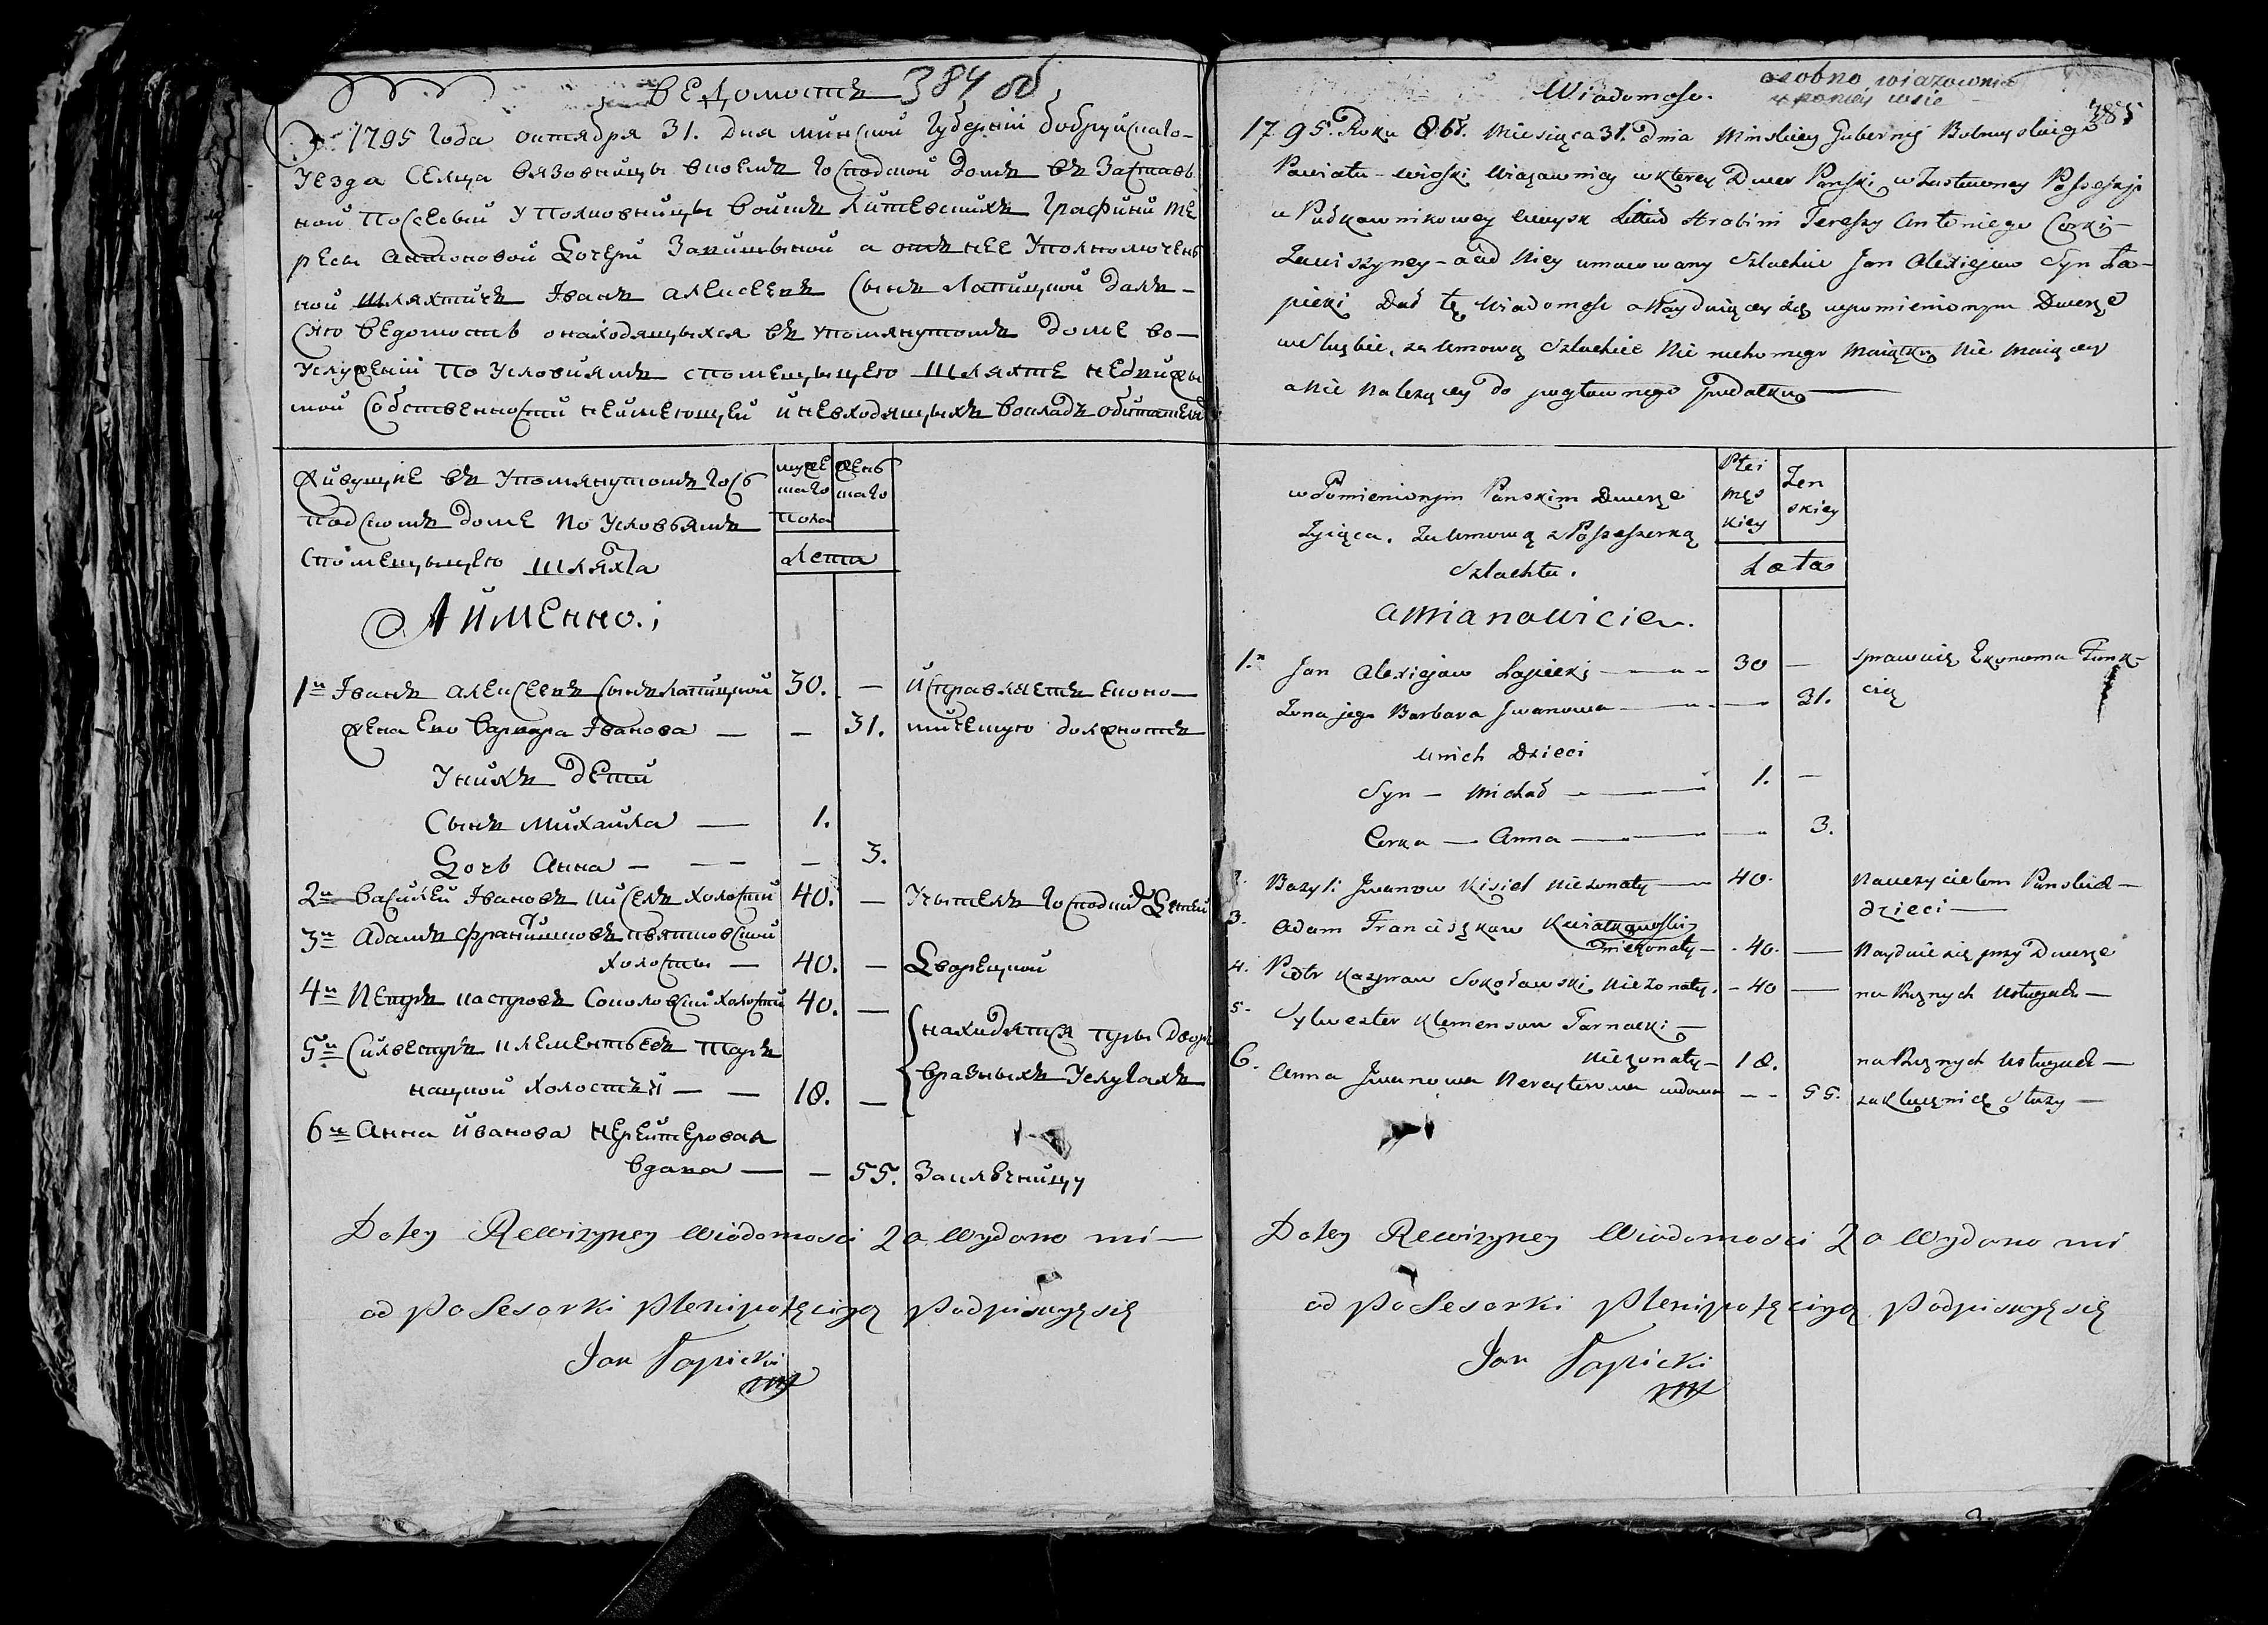 ведомость 384 об
1795 года октября 31. Дня минской Губерніи бобруйскаго-
уезда селца вязовницы вкоемъ Господской домъ въ застав
ной посессіи у полковницы войскъ литевскихъ Графини те
ресы антоновой дочери Завишыной а отъ нее уполномочен
ной шляхтичъ Іванъ алексеевъ сынъ лапицкой далъ-
сію ведомость онаходящыхся въ упомянутомъ доме во-
услуженіи по условіямъ спомещыцею шляхте недвижы
мой собственности неимеющей и невходящыхъ вокладъ
живущіе въ упомянутомъ гос
подскомъ доме по условьямъ
спомещыцею шляхта
Аименно:
муже
скаго
пола
жен
скаго
лета
1й Іванъ алексеевъ сынъ лапицкой 30. — исправляетъ еконо—
жена Его варвара Іванова — — 31. мическую должность
Унихъ дети
Сынъ михайла — 1.
Дочь Анна — — — — 3.
2й василей Івановъ кисель холостый 40. — Учытель Господскій детей
3й Адамъ францишковъ квятковской
холосты — 40. — дворецкой
4й Петръ каспровъ Соколовскій холостый 40. —
5й Сильвестръ клементьевъ тар
нацкой холостый — — 18. —
находятся пры дворе
вразныхъ услугахъ
6я Анна иванова нерейтеровая
вдава — — 55. заключницу
Do tey Rewizyney Wiadomosci Za Wydano mi—
od Possesorki plenipotęcyą podpisuję się
Jan Łapicki
mp
Wiadomosc.
osobno wiazownica
385
1795. Roku 8br. Miesiąca 31. Dnia Minskiey Gubernij Bobruyskiego
Powiatu — wioski Wiązawnicy w ktorey Dwor Panski w Zastawney Possessji
u Pułkownikowey woysk Littw Hrabini Teressy Antoniego Corki—
Zawiszyney — a od Niey umocowany Szlachcic Jan Alexiejew Syn Ła-
picki Dał tę Wiadomosc o Nayduiącey się wpomienionym Dworze
w Służbie, za Umową Szlachcie Nie ruchomego Maiątku Nie Maiącey
a Nie Należącey do pogłownego Podatku
w Pomienionym Panskim Dworze
Żyiąca. Za Umową z Possessorką
Szlachta.
Płci
męs
kiey
Żen
skiey
Lata
A Mianowicie.
1. Jan Alexiejew Łapicki — 30 — sprawuie Ekonoma Funk-
Żona jego Barbara Jwanowa — — 31. cią
u nich Dzieci
Syn — Michał — 1. —
Corka — Anna — — 3.
2. Bazyli Jwanow Kisiel Nieżonaty — 40. Nauczycielem Panskich—
dzieci —
3. Adam Franciszkow Kwiatkowski
Nieżonaty — 40. — Nayduie się przy Dworze
4. Piotr Kazprow Sokołowski Nieżonaty. — 40 — na Rużnych Usługach —
5. Sylwester Klemensow Tarnacki —
Nieżonaty — 18. na Rużnych Usługach —
6. Anna Jwanowa Nereyterowa wdowa — — 55. za Klucznicę Służy —
Do tey Rewizyney Wiadomosci Za Wydano mi
od Possesorki plenipotęcyą podpisuję się
Jan Łapicki
mp